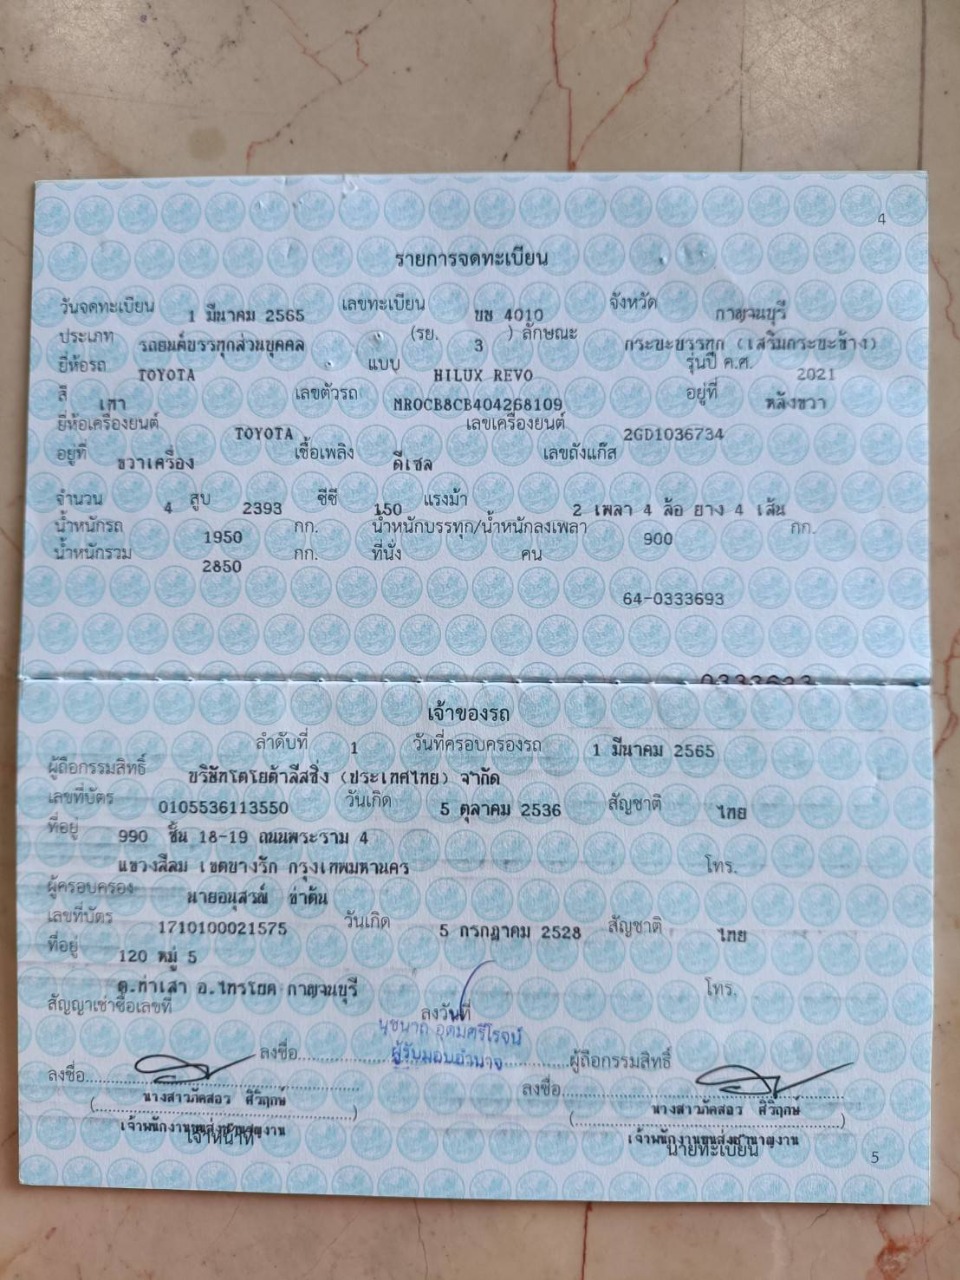 4
รายการจดทะเบียน
วันจดทะเบียน 1 มีนาคม 2565 เลขทะเบียน ขษ 4010 จังหวัด กาญจนบุรี
ประเภท รถยนต์บรรทุกส่วนบุคคล (รย. 3 ) ลักษณะ กระบะบรรทุก (เสริมกระบะข้าง)
ยี่ห้อรถ TOYOTA แบบ HILUX REVO รุ่นปี ค.ศ. 2021
สี เทา เลขตัวรถ MR0CB8CB404268109 อยู่ที่ หลังขวา
ยี่ห้อเครื่องยนต์ TOYOTA เลขเครื่องยนต์ 2GD1036734
อยู่ที่ ขวาเครื่อง เชื้อเพลิง ดีเซล เลขถังแก๊ส
จำนวน 4 สูบ 2393 ซีซี 150 แรงม้า 2 เพลา 4 ล้อ ยาง 4 เส้น
น้ำหนักรถ 1950 กก. น้ำหนักบรรทุก/น้ำหนักลงเพลา 900 กก.
น้ำหนักรวม 2850 กก. ที่นั่ง คน
64-0333693
เจ้าของรถ
ลำดับที่ 1 วันที่ครอบครองรถ 1 มีนาคม 2565
ผู้ถือกรรมสิทธิ์ บริษัทโตโยต้าลีสซิ่ง (ประเทศไทย) จำกัด
เลขที่บัตร 0105536113550 วันเกิด 5 ตุลาคม 2536 สัญชาติ ไทย
ที่อยู่ 990 ชั้น 18-19 ถนนพระราม 4
แขวงสีลม เขตบางรัก กรุงเทพมหานคร โทร.
ผู้ครอบครอง นายอนุสรณ์ ขำต้น
เลขที่บัตร 1710100021575 วันเกิด 5 กรกฎาคม 2528 สัญชาติ ไทย
ที่อยู่ 120 หมู่ 5
ต.ท่าเสา อ.ไทรโยค กาญจนบุรี โทร.
สัญญาเช่าซื้อเลขที่ ลงวันที่
นุชนาถ อุดมศรีโรจน์
ลงชื่อ ผู้รับมอบอำนาจ ผู้ถือกรรมสิทธิ์
ลงชื่อ ลงชื่อ
(นางสาวภัคสอว ศิวิฤกษ์) (นางสาวภัคสอว ศิวิฤกษ์)
เจ้าพนักงานขนส่งชำนาญงาน เจ้าพนักงานขนส่งชำนาญงาน
เจ้าหน้าที่ นายทะเบียน
5